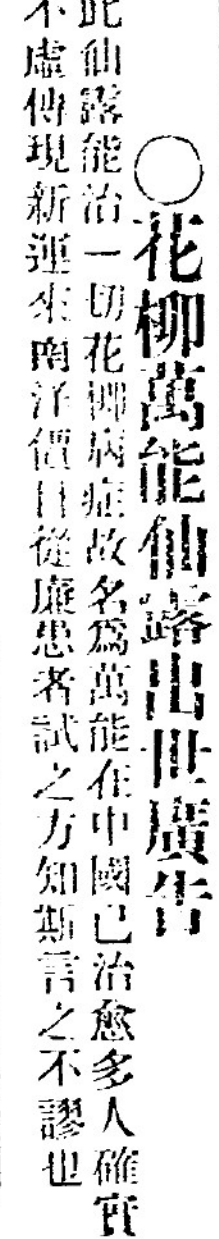 ○花柳萬能仙露出世廣告
此仙露能治一切花柳病症故名爲萬能在中國已治愈多人確實
不虛傳現新運來南洋價目從廉患者試之方知斯言之不謬也